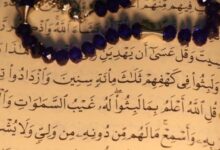 نَسِيتَ وَقُلْ عَسَىٰٓ أَن يَهْدِيَنِ
وَلَبِثُوا۟ فِى كَهْفِهِمْ ثَلَٰثَ مِا۟ئَةٍ سِنِينَ وَٱزْدَادُوا۟
قُلِ ٱللَّهُ أَعْلَمُ بِمَا لَبِثُوا۟ۖ لَهُۥ غَيْبُ ٱلسَّمَٰوَٰتِ
وَأَسْمِعْۚ مَا لَهُم مِّن دُونِهِۦ مِن وَلِىٍّ وَلَا